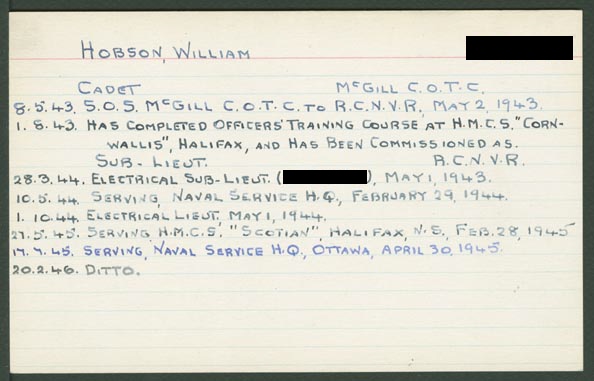 HOBSON, WILLIAM
CADET McGILL C.O.T.C.
8.5.43. S.O.S. McGILL C.O.T.C. TO R.C.N.V.R., MAY 2, 1943.
1.8.43. HAS COMPLETED OFFICERS' TRAINING COURSE AT H.M.C.S. "CORN-
WALLIS", HALIFAX, AND HAS BEEN COMMISSIONED AS.
SUB-LIEUT. R.C.N.V.R.
28.3.44. ELECTRICAL SUB-LIEUT. ( ), MAY 1, 1943.
10.5.44. SERVING, NAVAL SERVICE H.Q., FEBRUARY 29, 1944.
1.10.44. ELECTRICAL LIEUT, MAY 1, 1944.
27.5.45. SERVING H.M.C.S. "SCOTIAN", HALIFAX, N.S., FEB. 28, 1945
17.7.45. SERVING, NAVAL SERVICE H.Q., OTTAWA, APRIL 30, 1945.
20.2.46. DITTO.